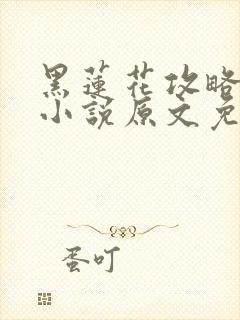 黑蓮花攻略
小說原文免
蛋叮